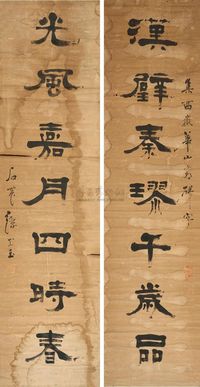 漢璧秦璆千歲品
集西嶽華山廟碑字
光風嘉月四時春